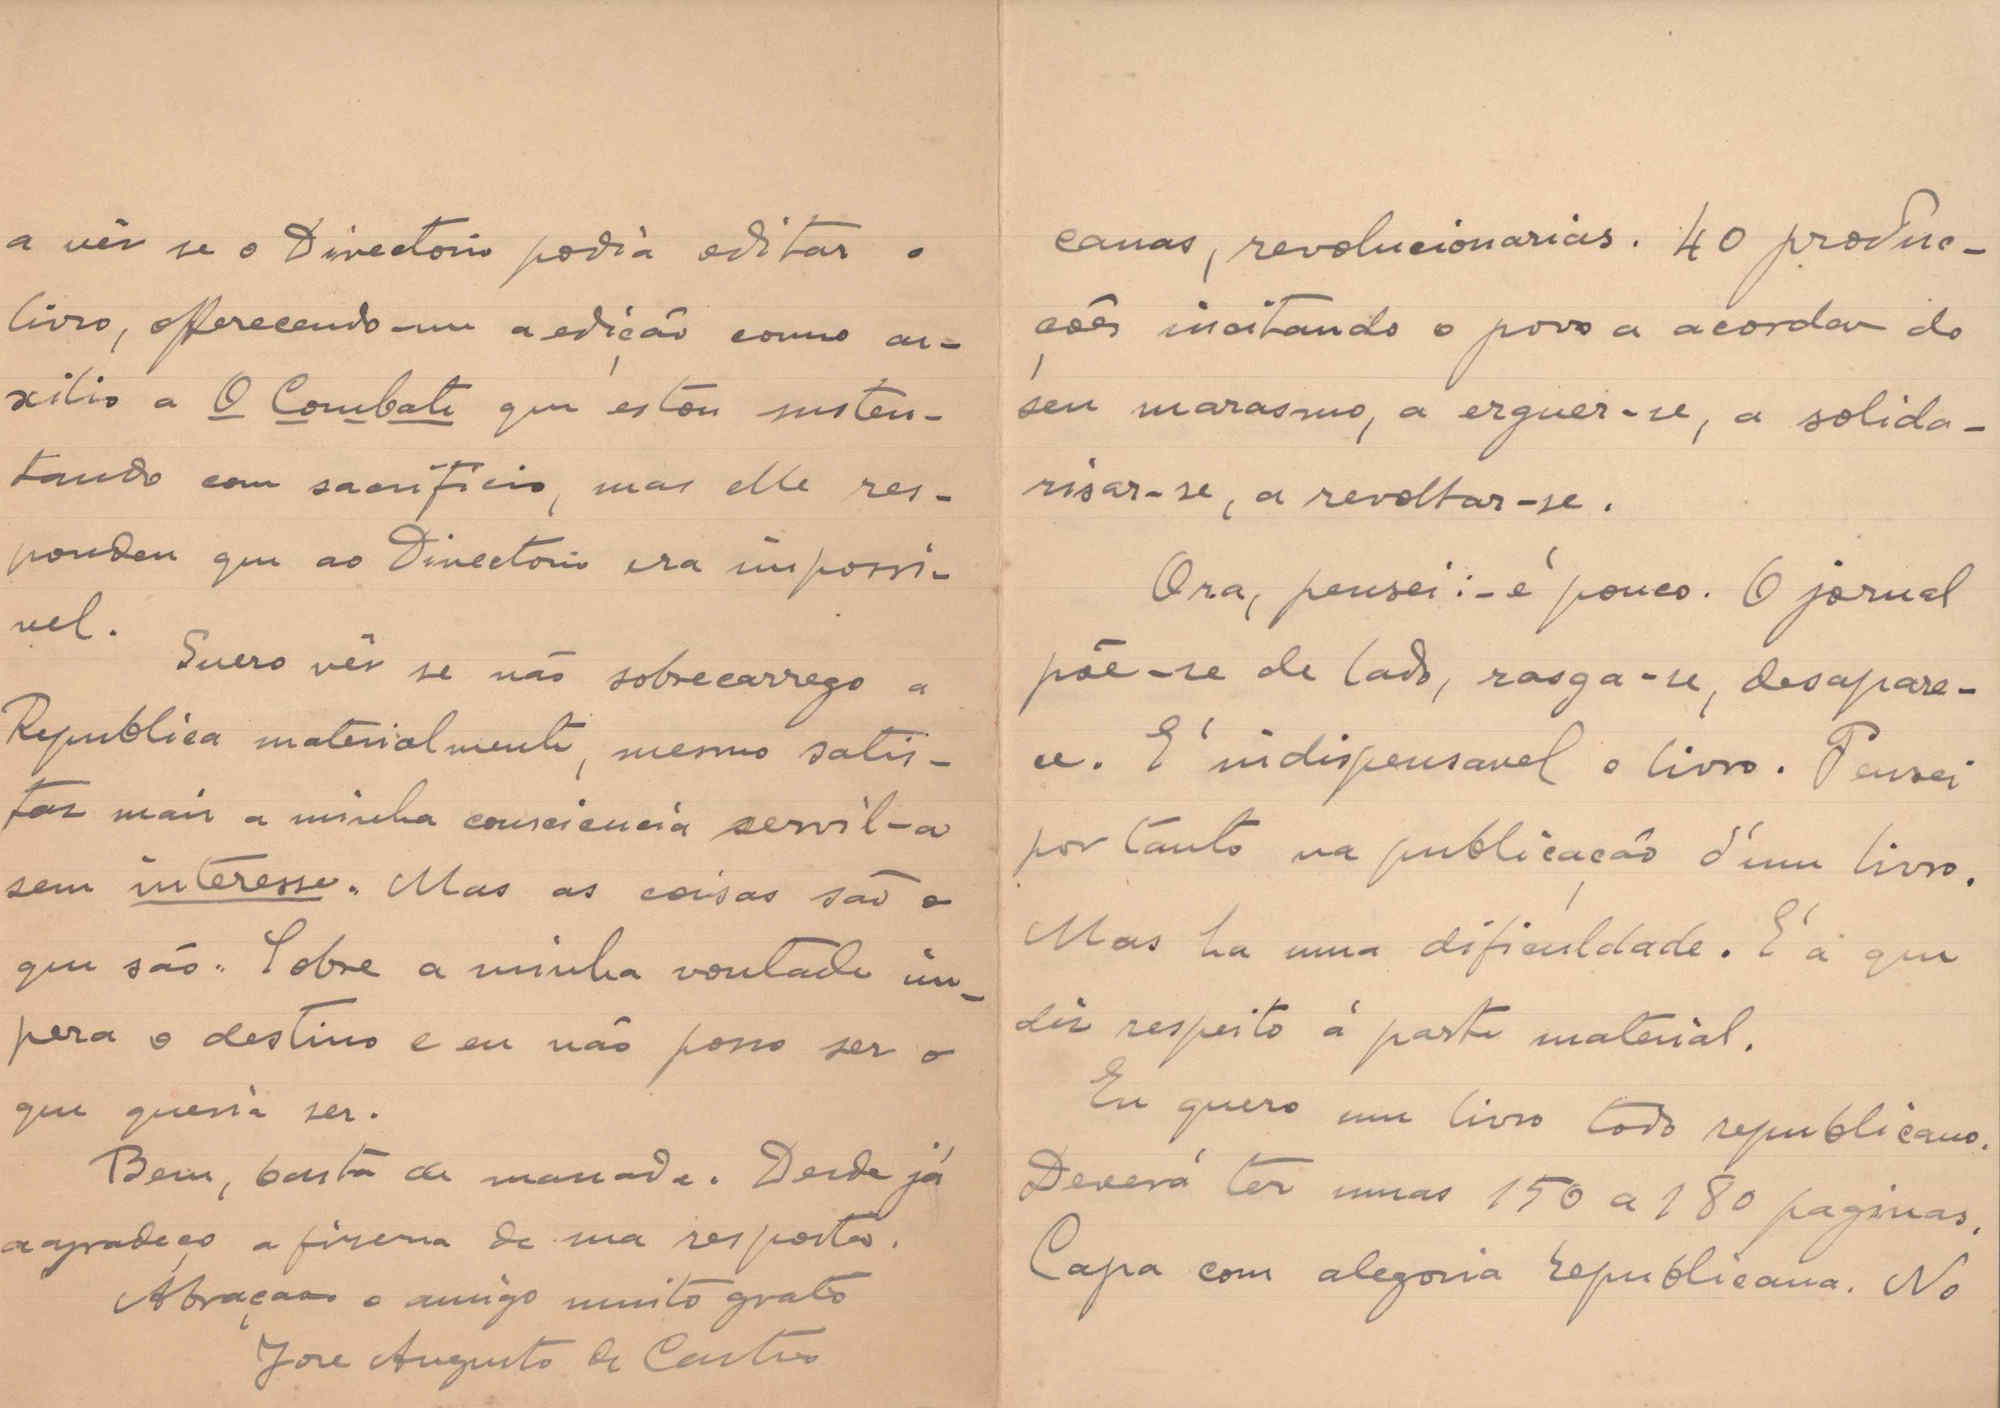 a vêr se o Directorio podia editar o
livro, offerecendo-me a edição como au-
xilio a O Combate que estou susten-
tando com sacrificio, mas elle res-
pondeu que ao Directorio era impossi-
vel.
Quero vêr se não sobrecarrego a
Republica materialmente, mesmo satis-
faz mais a minha consciencia servil-a
sem interesse. Mas as coisas são o
que são. Sobre a minha vontade im-
pera o destino e eu não posso ser o
que queria ser.
Bem, basta de massada. Desde já
agradeço a fineza de sua resposta.
Abraça-o o amigo muito grato
José Augusto de Castro
canas, revolucionarias. 40 produc-
ções incitando o povo a acordar do
seu marasmo, a erguer-se, a solida-
risar-se, a revoltar-se.
Ora, pensei:- é pouco. O jornal
põe-se de lado, rasga-se, desapare-
ce. E' indispensavel o livro. Pensei
portanto na publicação d'um livro.
Mas ha uma dificuldade. E' a que
diz respeito á parte material.
Eu quero um livro todo republicano.
Deverá ter umas 150 a 180 paginas.
Capa com alegoria republicana. No